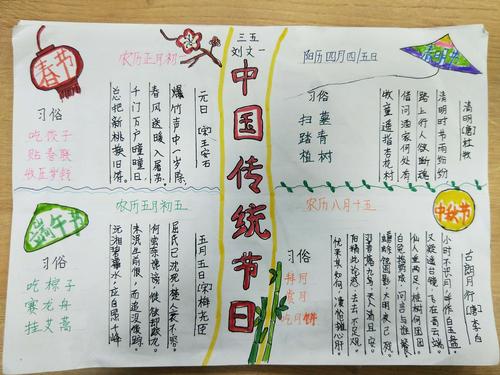 三五
刘文一
中国传统节日
春节
农历正月初一
习俗
吃饺子
贴春联
收压岁钱
元日 [宋] 王安石
爆竹声中一岁除
春风送暖入屠苏
千门万户曈曈日
总把新桃换旧符。
阳历四月四/五日
清明节
习俗
扫墓
踏青
植树
清明 [唐] 杜牧
清明时节雨纷纷
路上行人欲断魂
借问酒家何处有
牧童遥指杏花村
端午节
农历五月初五
习俗
吃粽子
赛龙舟
挂艾蒿
五月五日 [宋] 梅尧臣
屈氏已沉死,楚人哀不容。
何尝奈谗谤,徒欲却蛟龙。
未泯生前恨,而追没后踪。
沅湘碧潭水,应自照千峰。
农历八月十五
中秋节
习俗
拜月
赏月
吃月饼
古朗月行 [唐] 李白
小时不识月,呼作白玉盘。
又疑瑶台镜,飞在青云端。
仙人垂两足,桂树何团团。
白兔捣药成,问言与谁餐
蟾蜍蚀圆影,大明夜已残。
羿昔落九乌,天人清且安。
阴精此沦惑,去去不足观。
忧来其如何,凄怆摧心肝。